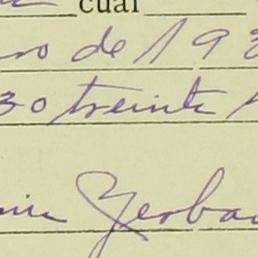 cual
ro de 193
30 treinta
Yerba